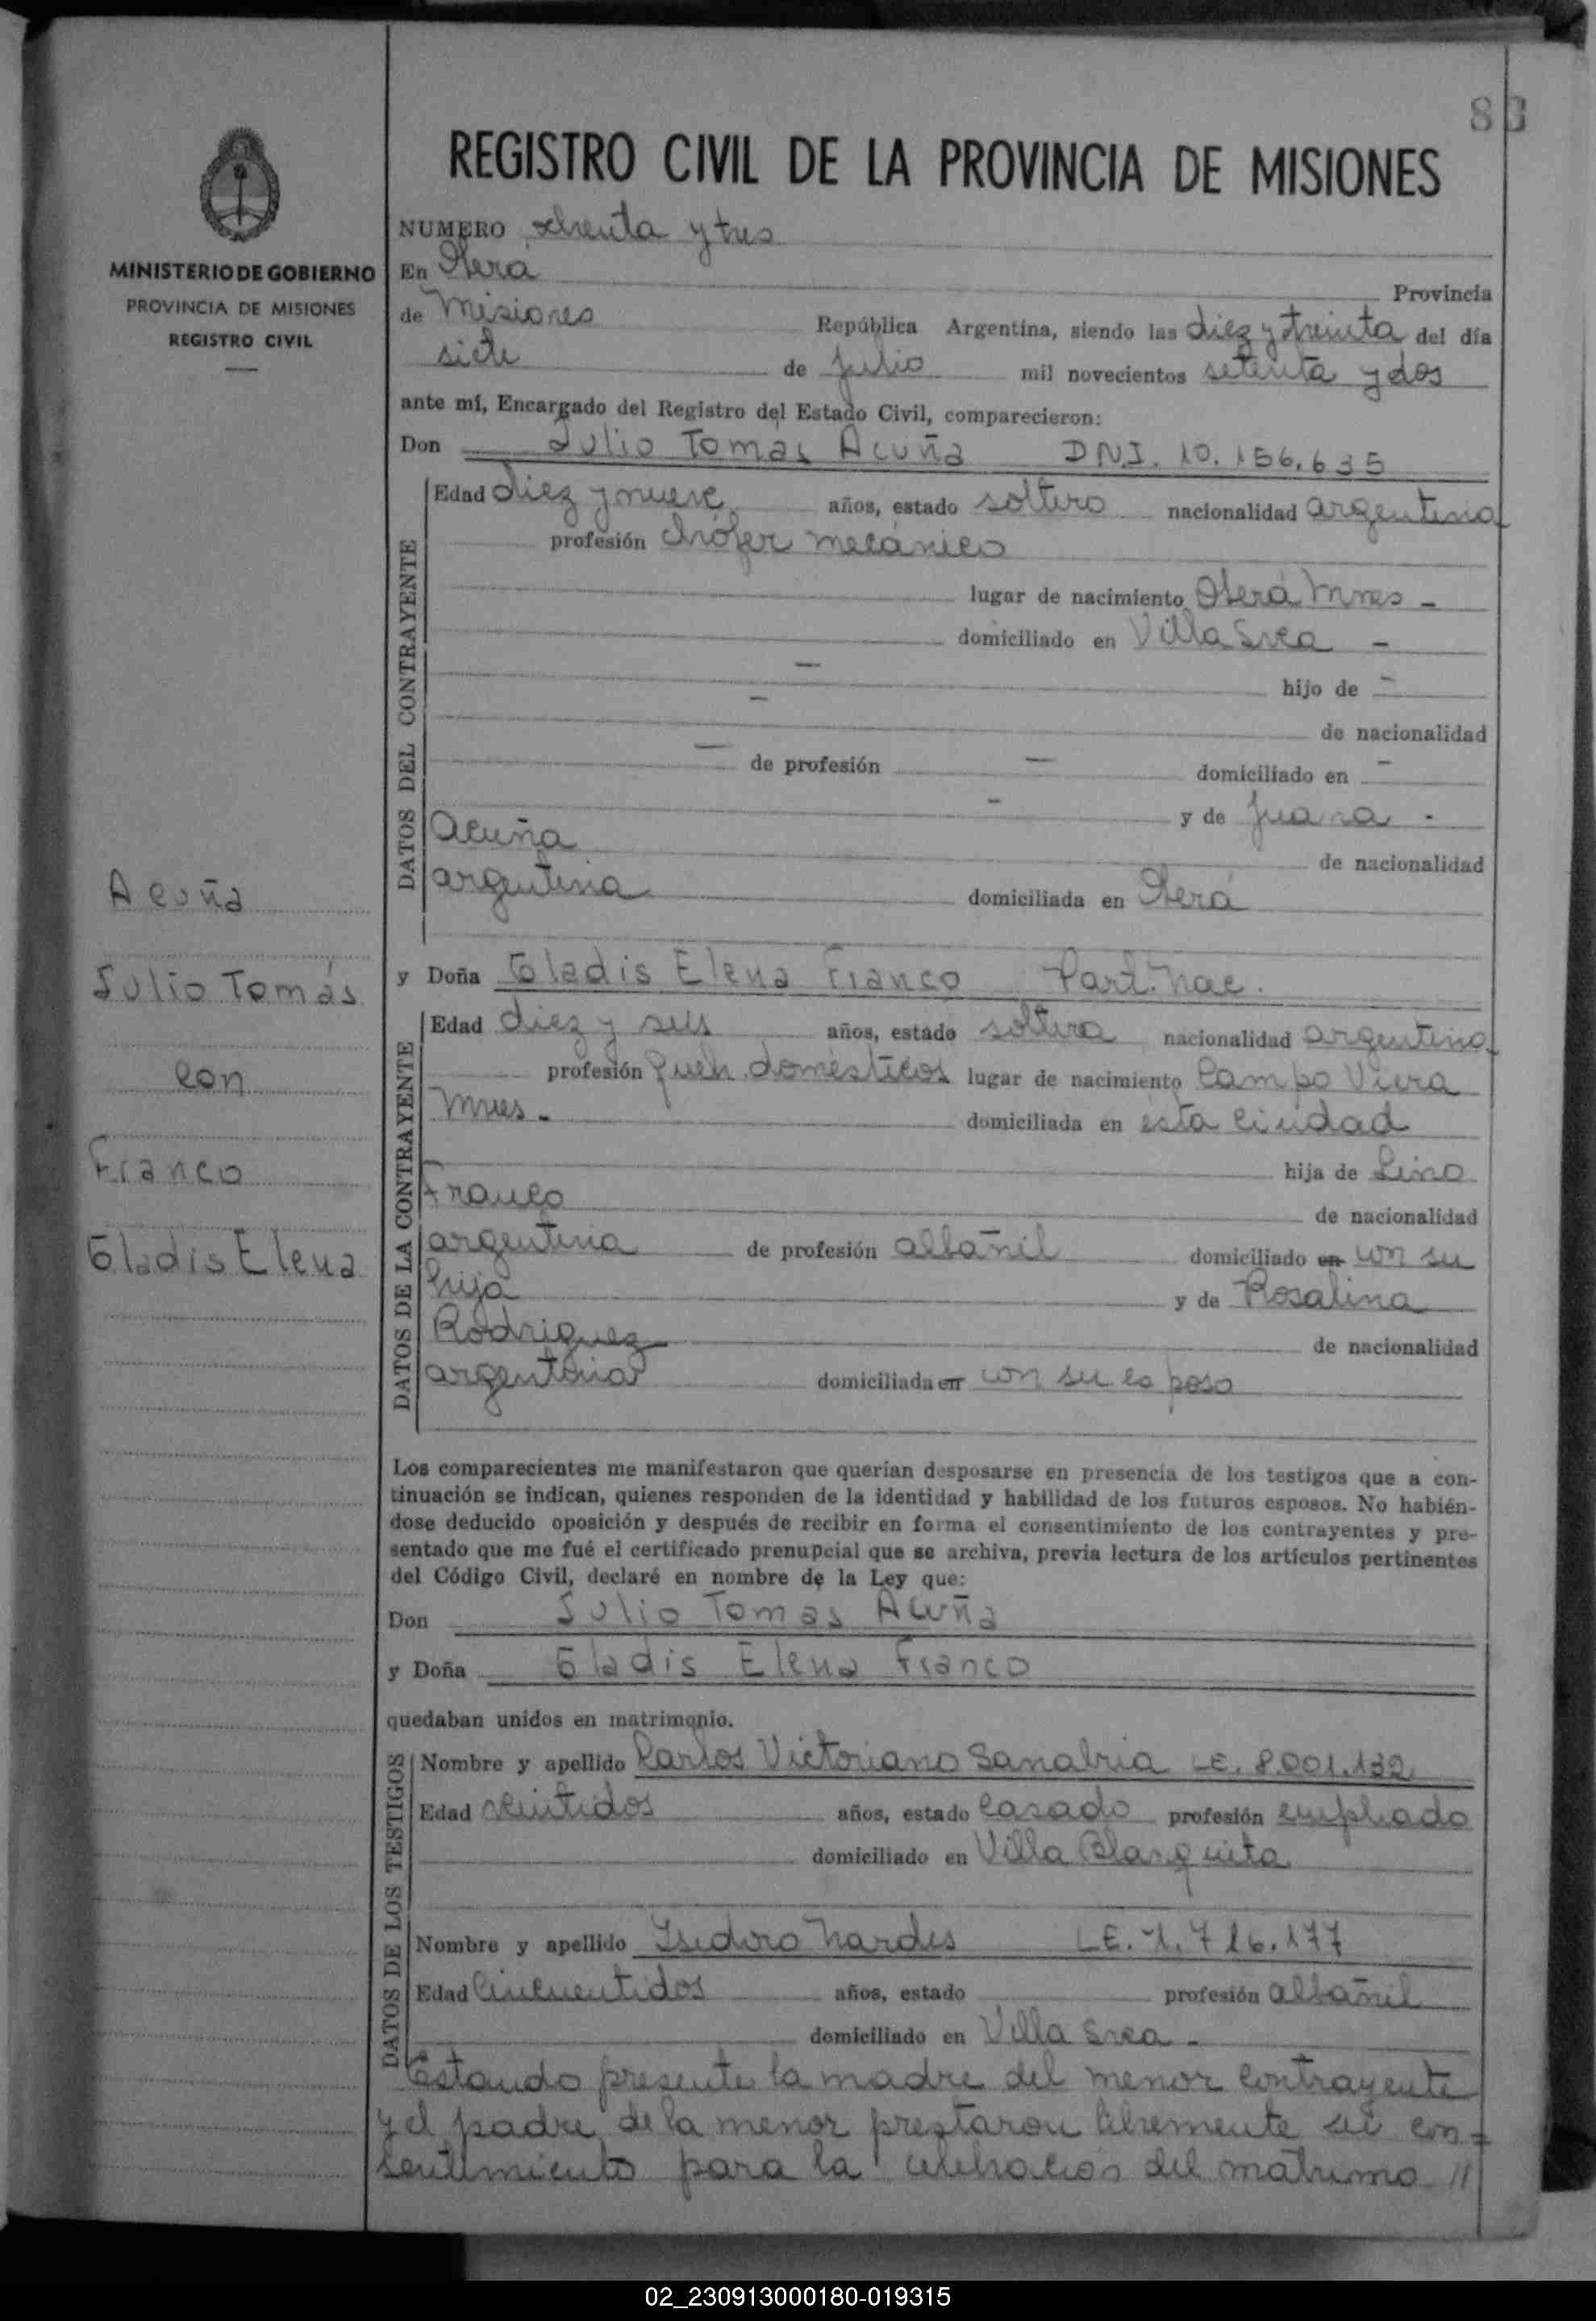 83
REGISTRO CIVIL DE LA PROVINCIA DE MISIONES
MINISTERIO DE GOBIERNO
PROVINCIA DE MISIONES
REGISTRO CIVIL
Acuña
Julio Tomás
con
Franco
Gladis Elena
NUMERO ochenta y tres
En Oberá Provincia
de Misiones República Argentina, siendo las diez y treinta del día
siete de julio mil novecientos setenta y dos
ante mí, Encargado del Registro del Estado Civil, comparecieron:
Don Julio Tomas Acuña DNI. 10.156.635
DATOS DEL CONTRAYENTE
Edad diez y nueve años, estado soltero nacionalidad argentina
profesión chófer mecánico
lugar de nacimiento Oberá Mnes -
domiciliado en Villa Svea -
- hijo de -
- de nacionalidad
- de profesión - domiciliado en -
- y de Juana -
Acuña de nacionalidad
argentina domiciliada en Oberá
y Doña Gladis Elena Franco Part. Nac.
DATOS DE LA CONTRAYENTE
Edad diez y seis años, estado soltera nacionalidad argentina
profesión queh. domésticos lugar de nacimiento Campo Viera
Mnes - domiciliada en esta ciudad
hija de Lino
Franco de nacionalidad
argentina de profesión albañil domiciliado en con su
hija y de Rosalina
Rodriguez de nacionalidad
argentina domiciliada en con su esposo
Los comparecientes me manifestaron que querían desposarse en presencia de los testigos que a con-
tinuación se indican, quienes responden de la identidad y habilidad de los futuros esposos. No habién-
dose deducido oposición y después de recibir en forma el consentimiento de los contrayentes y pre-
sentado que me fué el certificado prenupcial que se archiva, previa lectura de los artículos pertinentes
del Código Civil, declaré en nombre de la Ley que:
Don Julio Tomas Acuña
y Doña Gladis Elena Franco
quedaban unidos en matrimonio.
DATOS DE LOS TESTIGOS
Nombre y apellido Carlos Victoriano Sanabria LE. 8.001.132
Edad veintidos años, estado casado profesión empleado
domiciliado en Villa Blanquita
Nombre y apellido Isidoro Nardes LE. 1.716.177
Edad Cincuentidos años, estado profesión albañil
domiciliado en Villa Svea -
Estando presente la madre del menor contrayente
y el padre de la menor prestaron libremente su con-
sentimiento para la celebración del matrimo //
02_230913000180-019315